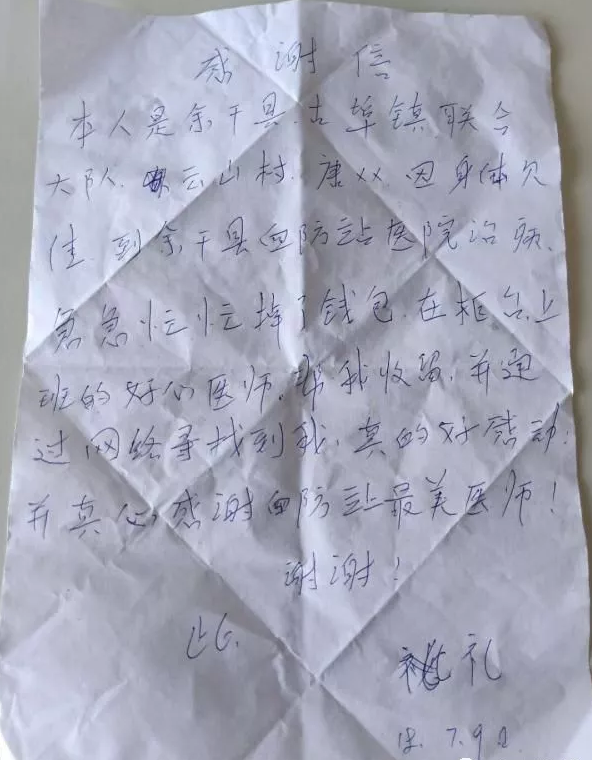 感谢信
本人是余干县.古埠镇.联合
大队.云山村.康XX.因身体欠
佳.到余干县血防站医院治病.
急急忙忙掉了钱包.在柜台上
班的好心医师.帮我收留.并通
过网络寻找到我.真的好感动.
并真心感谢血防站最美医师!
谢谢!
此
礼
18. 7. 9日